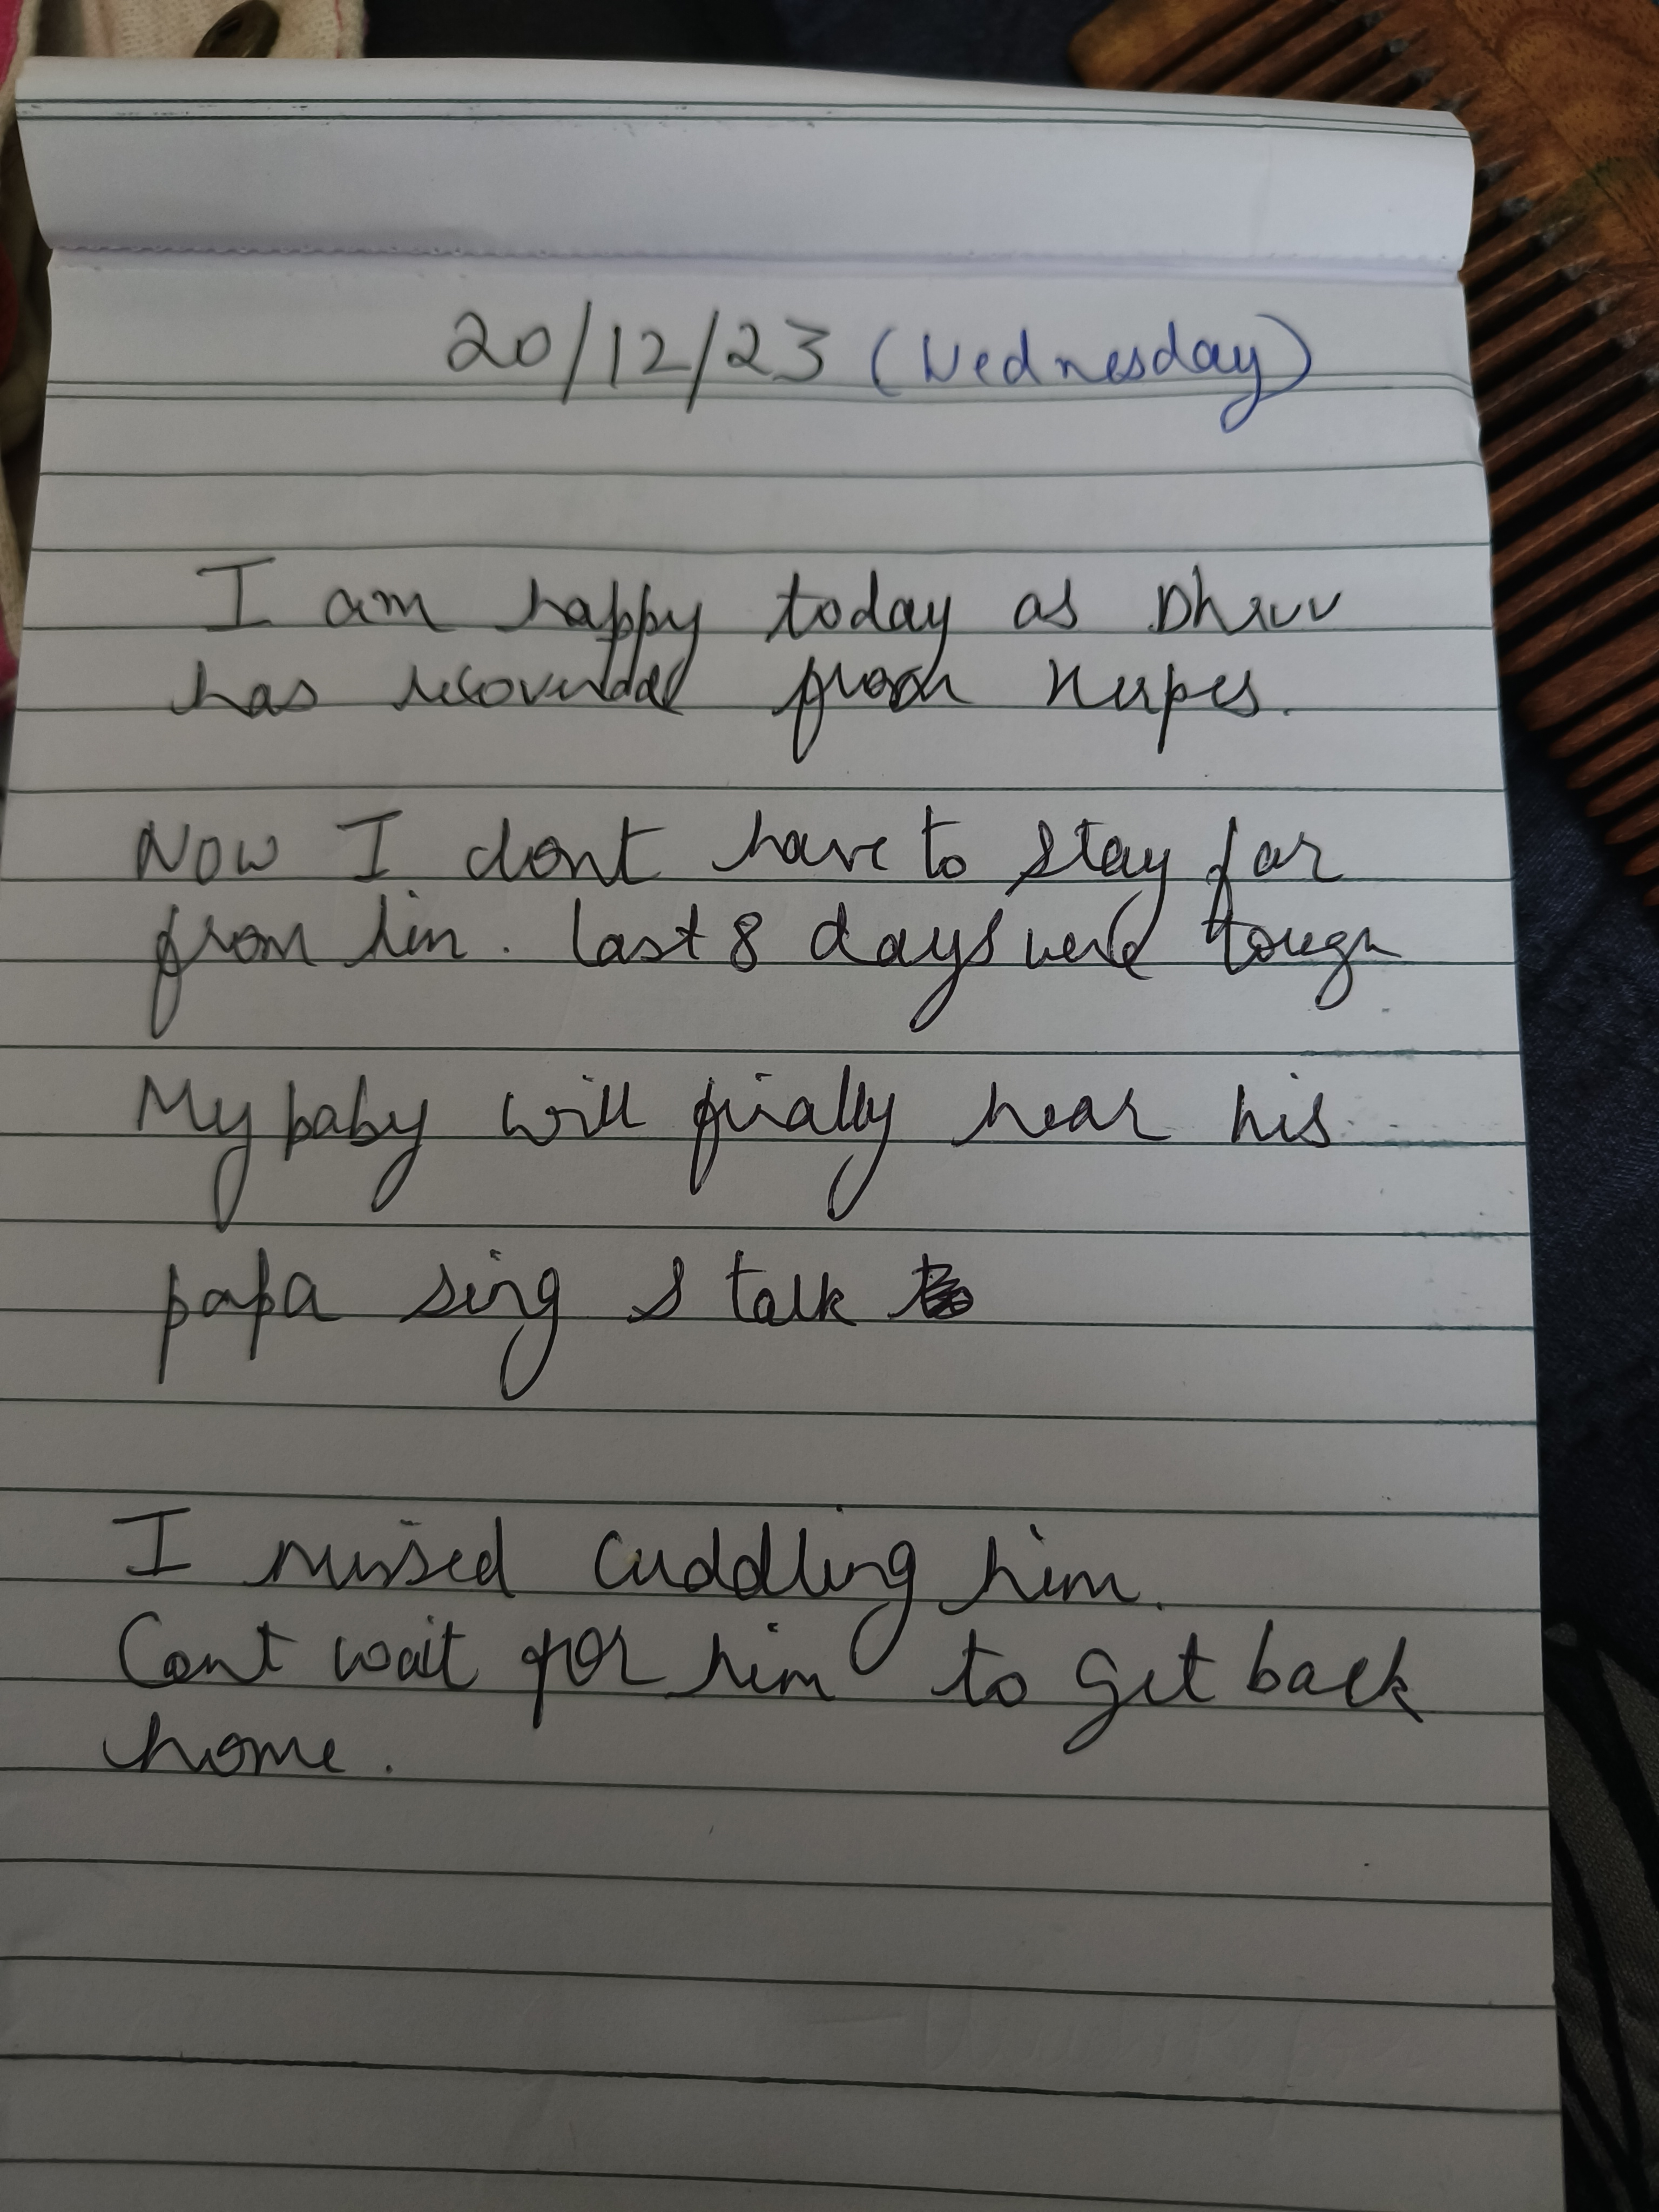 20/12/23 (Wednesday)
I am happy today as Dhruv
has recovered from Herpes.
Now I dont have to stay far
from him. last 8 days were tough
My baby will finally hear his
papa sing & talk
I missed cuddling him.
Cant wait for him to get back
home.